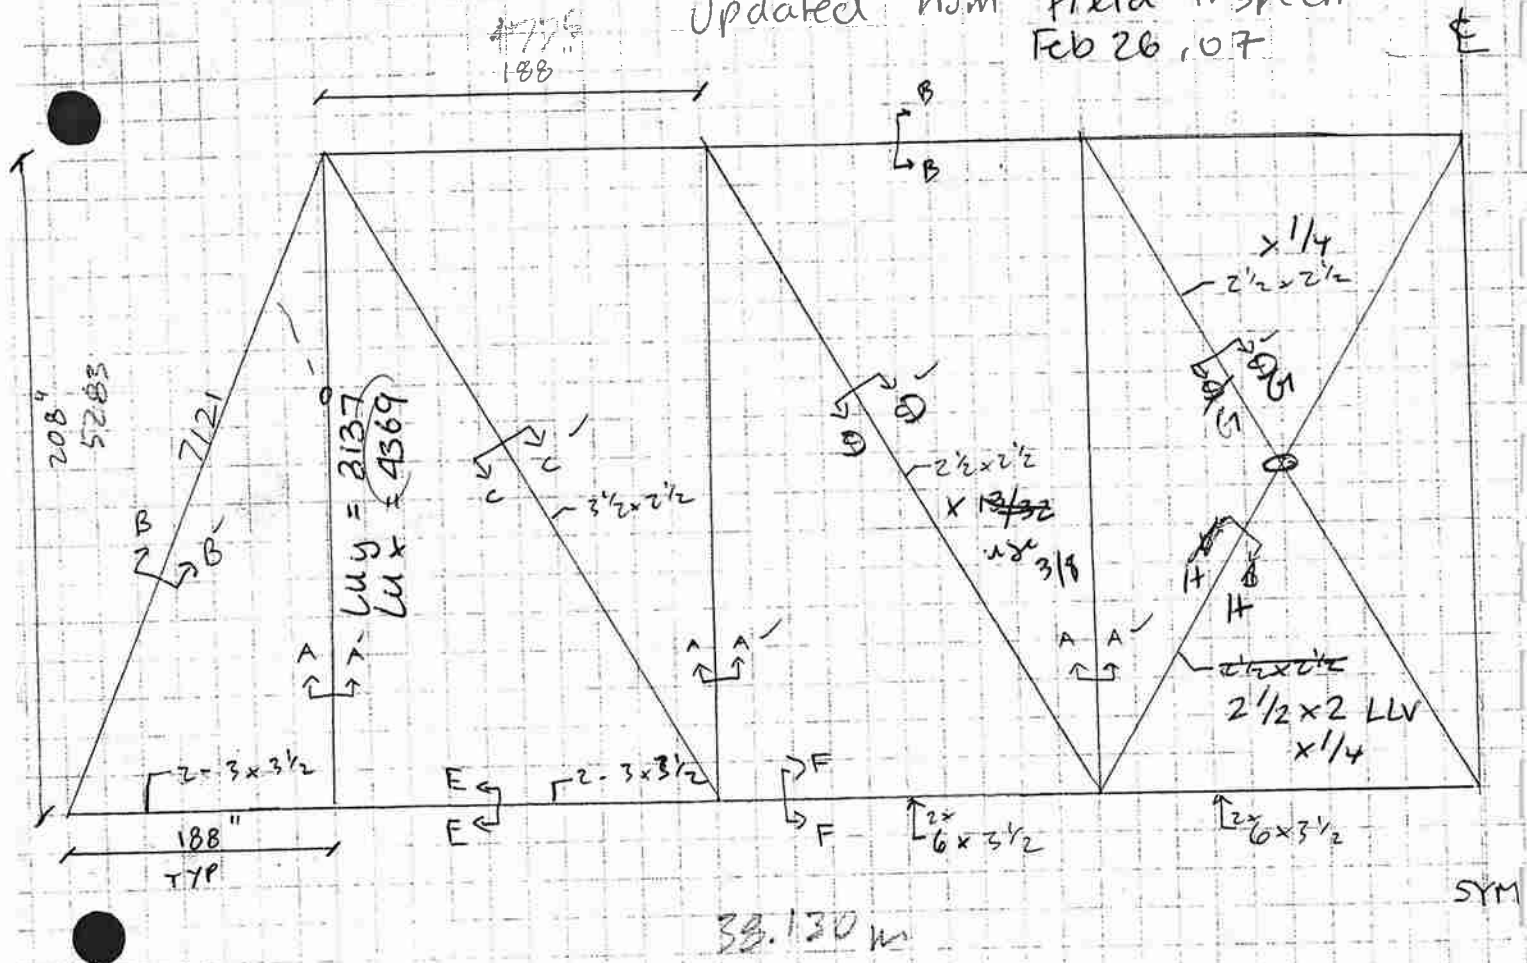 Updated from Field Inspection
Feb 26, 07
℄
188
B
B
208"
5283
7121
B
B
Luy = 2137
Lux = 4369
A A
C
C
3 1/2 x 2 1/2
A A
D
D
2 1/2 x 2 1/2
x 13/32
use 3/8
A A
x 1/4
2 1/2 x 2 1/2
G
G
H
H
2 1/2 x 2 1/2
2 1/2 x 2 LLV
x 1/4
2 - 3 x 3 1/2
E
E
2 - 3 x 3 1/2
F
F
2x
6 x 3 1/2
2x
6 x 3 1/2
188"
TYP
SYM
38.130 m